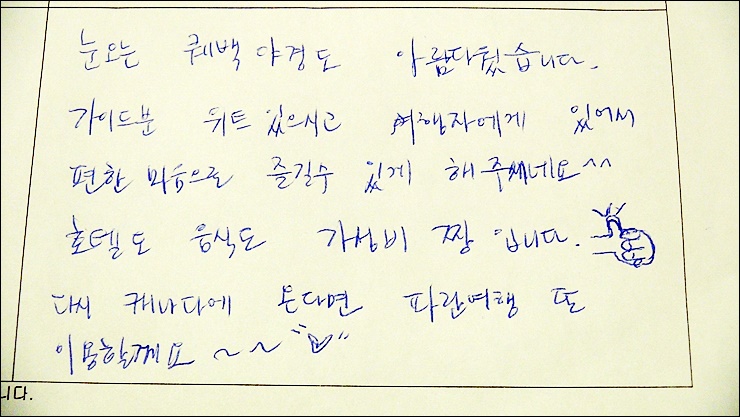 눈오는 퀘백 야경도 아름다웠습니다.
가이드분 위트 있으시고 여행자에게 있어서
편한 마음으로 즐길수 있게 해주시네요^^
호텔도 음식도 가성비 짱 입니다.
다시 캐나다에 온다면 파란여행 또
이용할께요 ~~
니다.